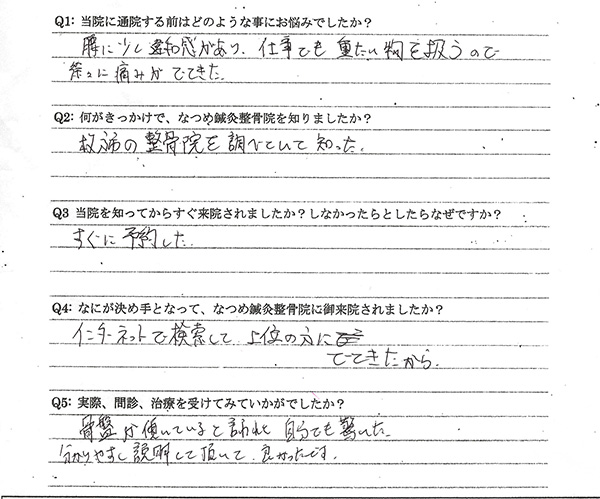 Q1: 当院に通院する前はどのような事にお悩みでしたか？
腰に少し違和感があり、仕事でも重たい物を扱うので
徐々に痛みがでてきた。
Q2: 何がきっかけで、なつめ鍼灸整骨院を知りましたか？
の整骨院を調べていて知った。
Q3 当院を知ってからすぐ来院されましたか？しなかったらとしたらなぜですか？
すぐに予約した。
Q4: なにが決め手となって、なつめ鍼灸整骨院に御来院されましたか？
インターネットで検索して上位の方に
でてきたから。
Q5: 実際、問診、治療を受けてみていかがでしたか？
骨盤が傾いていると言われ自分でも驚いた。
分かりやすく説明して頂いて、良かったです。